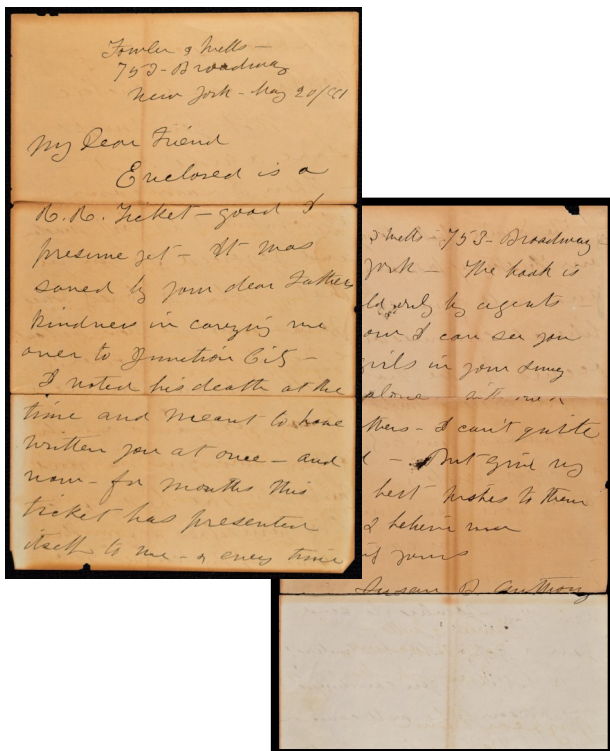 Fowler & Wells —
753 - Broadway
New York - May 20/81
My Dear Friend
Enclosed is a
R. R. Ticket - good I
presume yet - It was
saved by your dear Father's
kindness in carrying me
over to Junction City -
I noted his death at the
time and meant to have
written you at once - and
now - for months this
ticket has presented
itself to me - & every time
& Wells - 753 - Broadway
York - The book is
only by agents
I can see you
girls in your
alone
thers - I can't quite
- But give my
best wishes to them
& believe me
yours
Susan B. Anthony